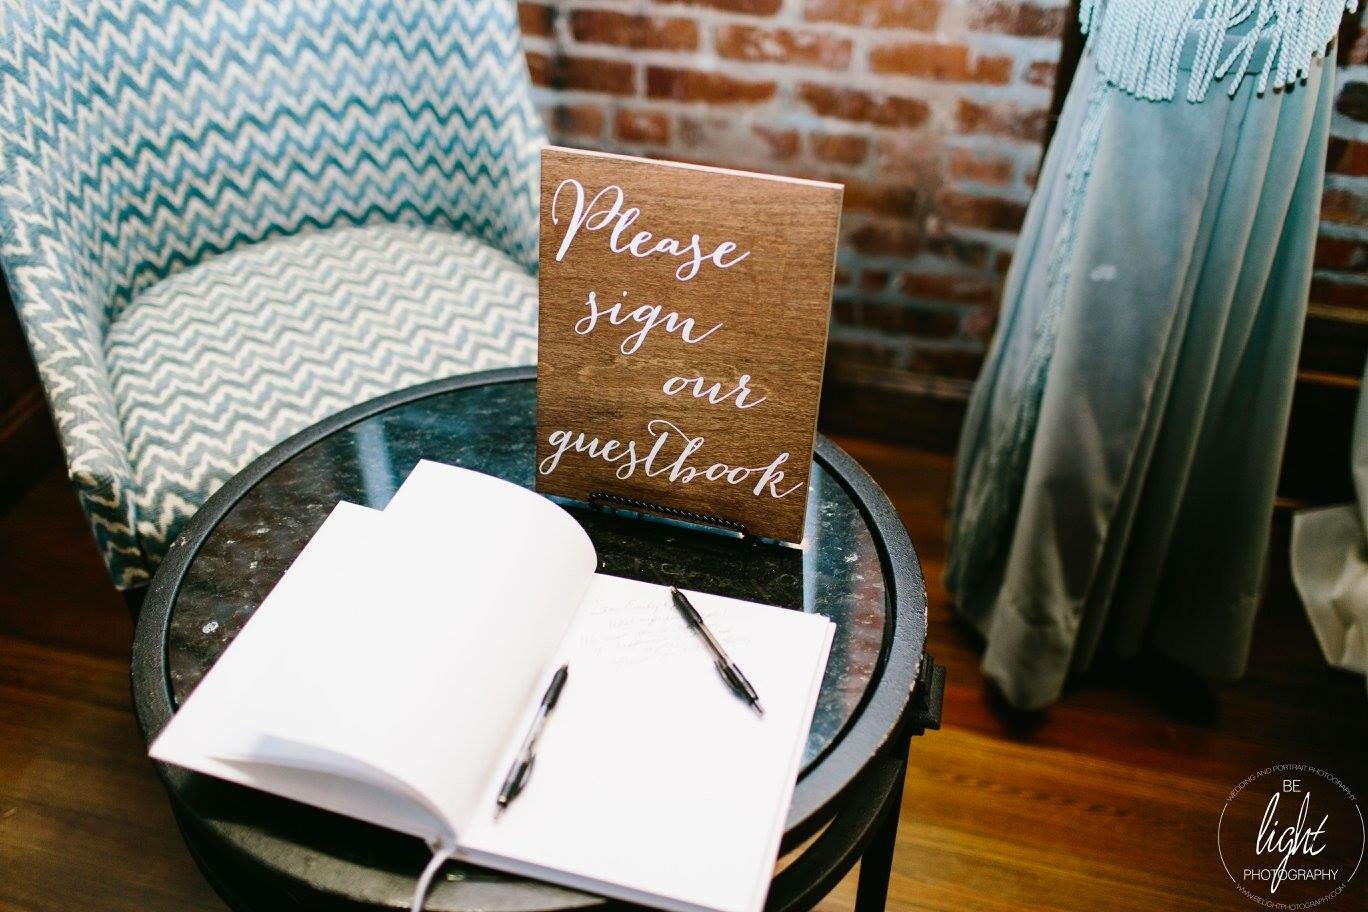 Please
sign
our
guestbook
WEDDING AND PORTRAIT PHOTOGRAPHY
BE
light
PHOTOGRAPHY
WWW.BELIGHTPHOTOGRAPHY.COM